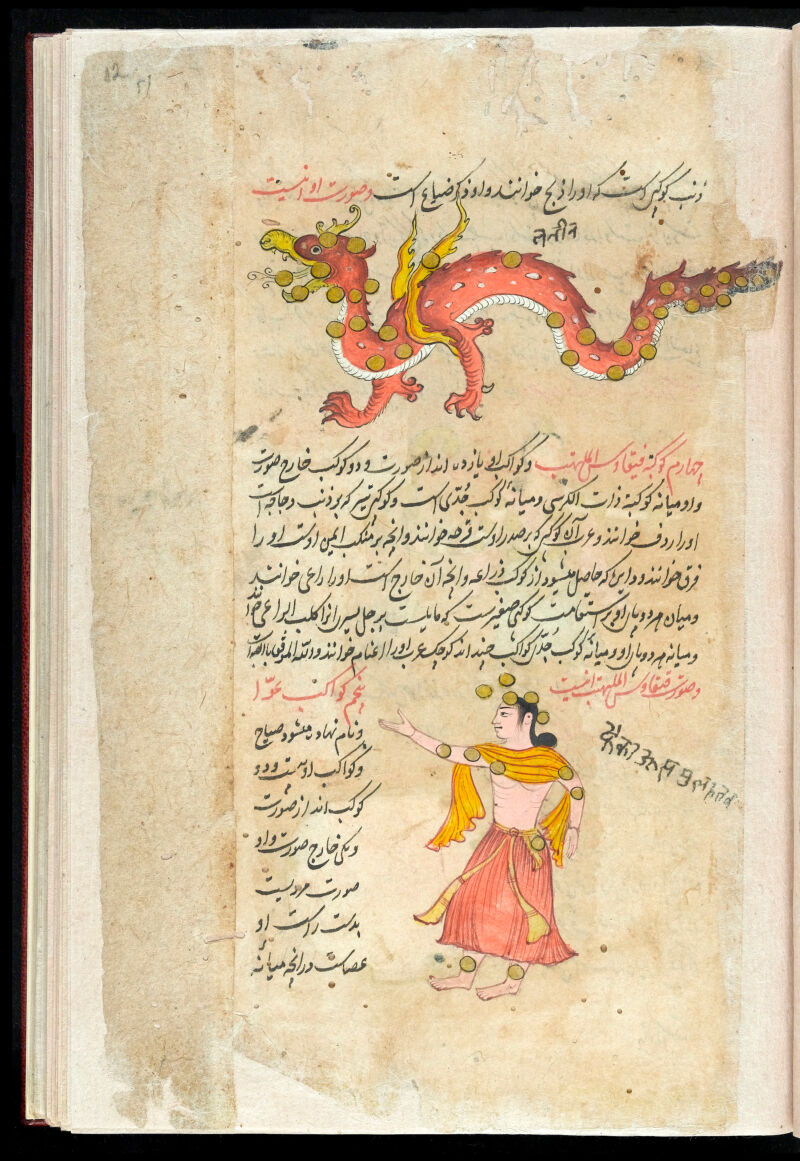 ذنب کوکبی است که او را ذیخ خوانند و او ذکر ضباع است و صورت او اینست
तनीन
چهارم کوکبة قیقاوس الملهب و کواکب او یازده اند از صورت و دو کوکب خارج صورت
و او میانه کوکبة ذات الکرسی و میانه کوکب جدی است و کوکبی نیر که بر ذنب دجاجه است
او را ردف خوانند و عرب آن کوکبی که بر صدر اوست قرحه خوانند و انچه بر منکب ایمن اوست او را
فرق خوانند و دایره که حاصل میشود از کوکب ذراعه و انچه آن خارج است او را راعی خوانند
و میان هر دو پای او بر استقامت کوکبی صغیر است که مایلست برجل یسر انرا کلب الراعی خوانند
و میانه هر دو پای او و میانه کوکب جدی کواکب چند اند کوچک عرب او را اغنام خوانند و الله الموفق بالصواب
و صورت قیقاوس الملهب اینست
پنجم کواکب عوّا
و نام نهاده میشود صیاح
و کواکب او بیست و دو
کوکب اند از صورت
و یکی خارج صورت و او
صورت مردیست
بدست راست او
عصاست در انچه میانه